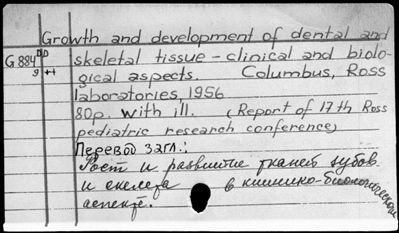 Growth and development of dental and
G 884 DD skeletal tissue – clinical and biolo-
9 ++ gical aspects. Columbus, Ross
laboratories, 1956
80p. with ill. (Report of 17th Ross
pediatric research conference)
Перевод загл.:
Рост и развитие тканей зубов
и скелета в клинико-биологическом
аспекте.